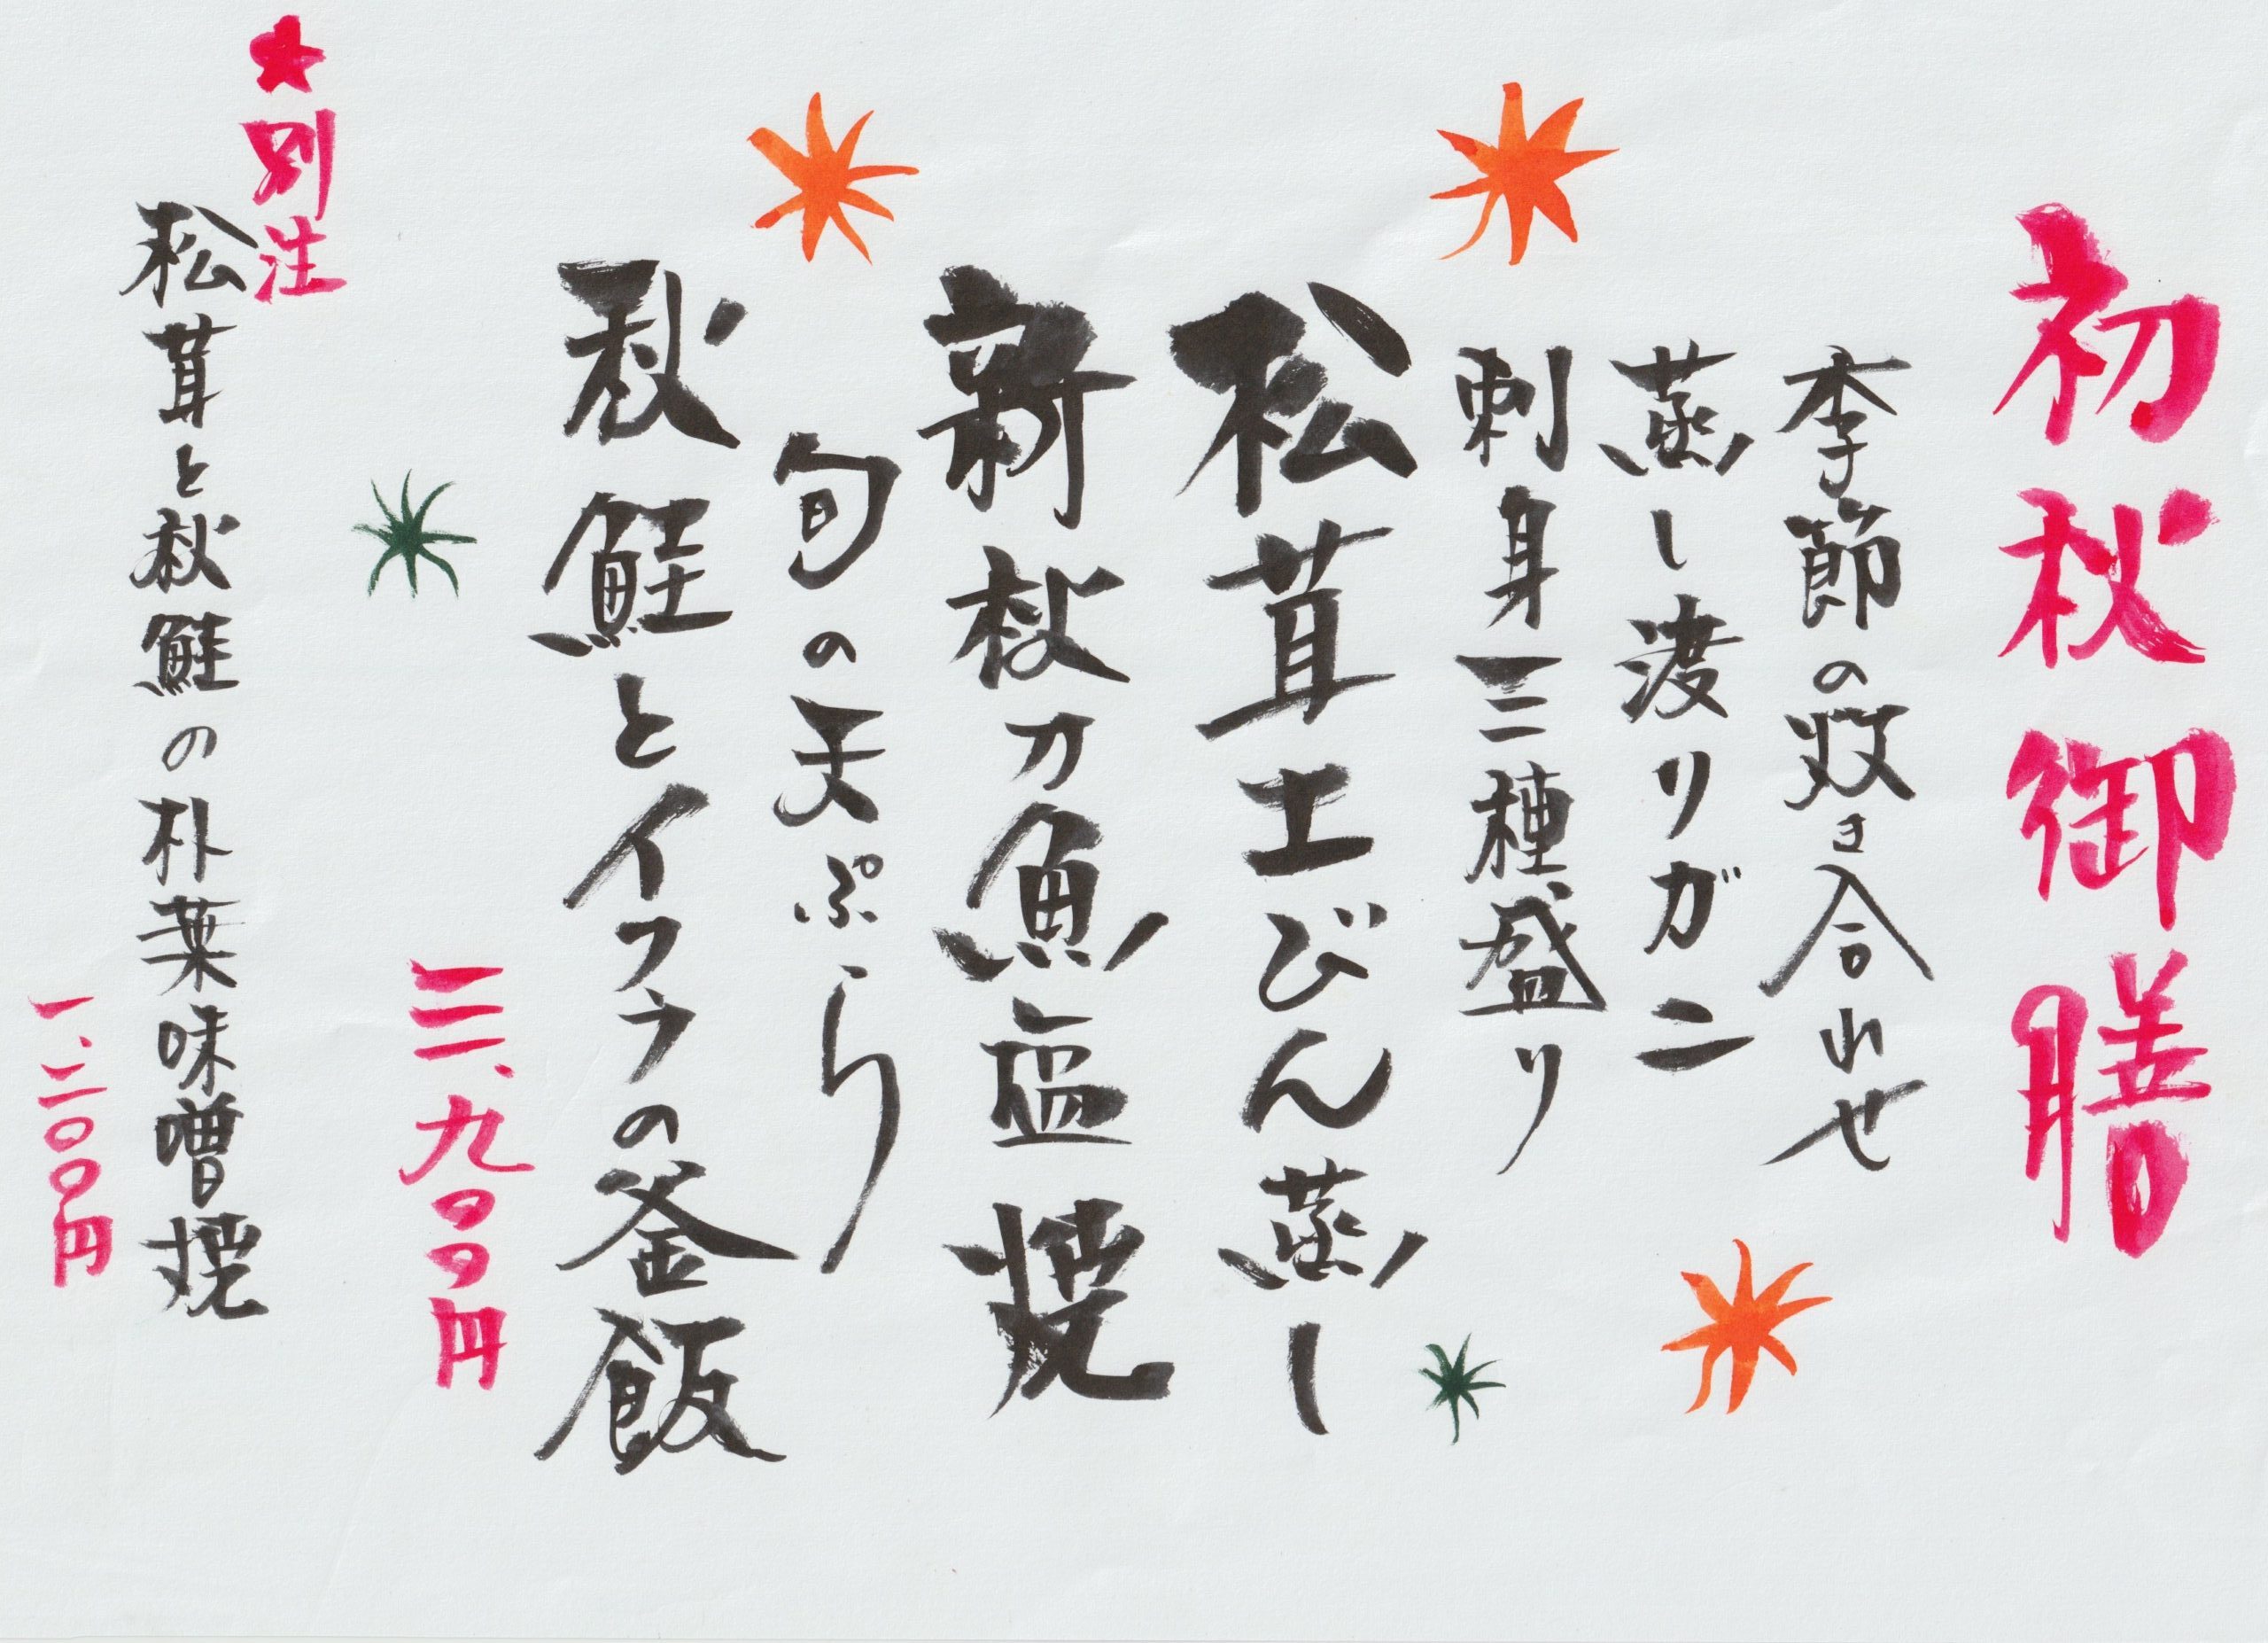 初秋御膳
季節の炊き合わせ
蒸し渡りガニ
刺身三種盛り
松茸土びん蒸し
新秋刀魚塩焼
旬の天ぷら
秋鮭とイクラの釜飯
三、九〇〇円
★別注
松茸と秋鮭の朴葉味噌焼
一、二〇〇円